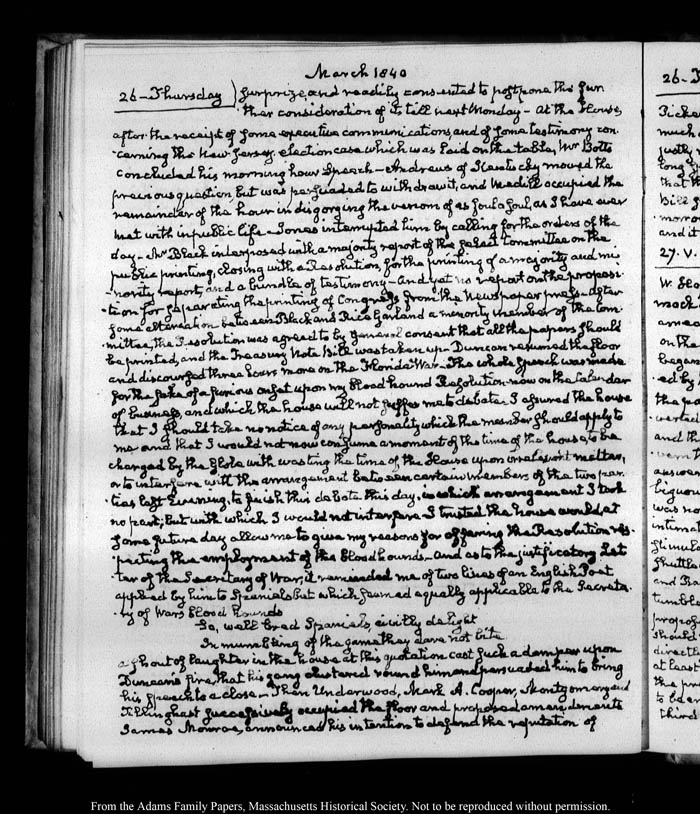 March 1840
26 - Thursday) surprize, and readily consented to postpone the fur
ther consideration of it till next Monday - At the House,
after the receipt of some executive communications and of some testimony con
cerning the New-Jersey election case which was laid on the table, Mr Botts
concluded his morning hour Speech - Andrews of Kentucky moved the
previous question, but was persuaded to withdraw it, and Medill occupied the
remainder of the hour in disgorging the venom of as foul a soul, as I have ever
met with in public life - Jones interrupted him by calling for the orders of the
day - Mr Black interposed with a majority report of the select Committee on the
public printing, closing with a Resolution, for the printing of a majority and mi
nority report, and a bundle of testimony - And yet no report on the proposi
tion for separating the printing of Congress from the Newspaper press - After
some altercation between Black and Rice Garland a minority member of the Com
mittee, the Resolution was agreed to by general consent that all the papers should
be printed, and the Treasury Note Bill was taken up - Duncan resumed the floor
and discoursed three hours more on the Florida War - The whole Speech was made
for the sake of a furious onset upon my blood hound Resolution now on the Calendar
of business, and which the house will not suffer me to debate. I assured the house
that I should take no notice of any personality which the member should apply to
me and that I would not now consume a moment of the time of the house, to be
charged by the Globe with wasting the time of the House upon irrelevant matter,
or to interfere with the arrangement between certain members of the two par
ties last Evening, to finish this debate this day, in which arrangement I took
no part; but with which I would not interfere I trusted the house would at
some future day allow me to give my reasons for offering the Resolution res
pecting the employment of the bloodhounds - And as to the justificatory Let
ter of the Secretary of War, it reminded me of two lines of an English Poet
applied by him to Spaniels but which seemed equally applicable to the Secreta
ry of Wars blood hounds
So, well bred Spaniels, civilly delight
In mumbling of the game they dare not bite
a shout of laughter in the house at this quotation cast such a damper upon
Duncan's fire, that his gang clustered round him and persuaded him to bring
his Speech to a close - Then Underwood, Mark A. Cooper, Montgomery and
Tillinghast successively occupied the floor and proposed amendments
James Monroe, announced his intention to defend the reputation of
26 -
much
justly
that th
Bill
morro
and it
27. V.
on the
began
ed by
and th
was no
stimula
tumble
should
directl
at least
to be
third
From the Adams Family Papers, Massachusetts Historical Society. Not to be reproduced without permission.